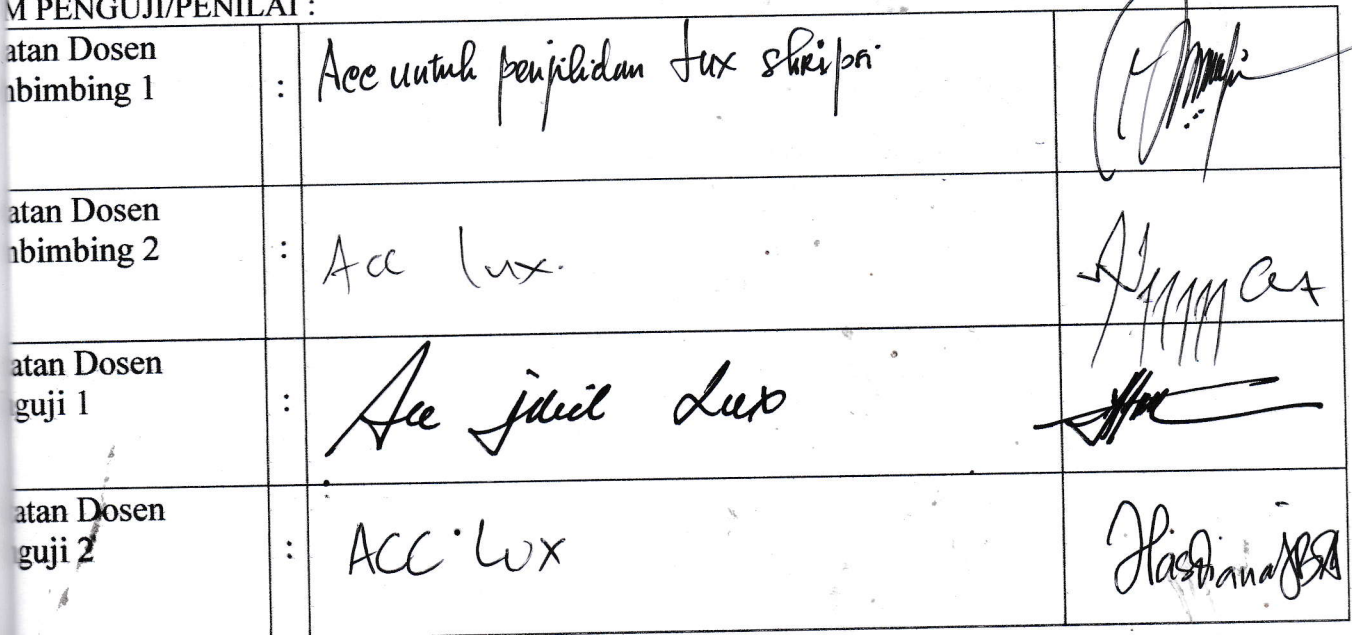 M PENGUJI/PENILAI :
atan Dosen
nbimbing 1 : Acc untuk penjilidan lux skripsi
atan Dosen
nbimbing 2 : Acc lux.
atan Dosen
guji 1 : Acc jilid Lux
atan Dosen
guji 2 : ACC LUX
Hastiana